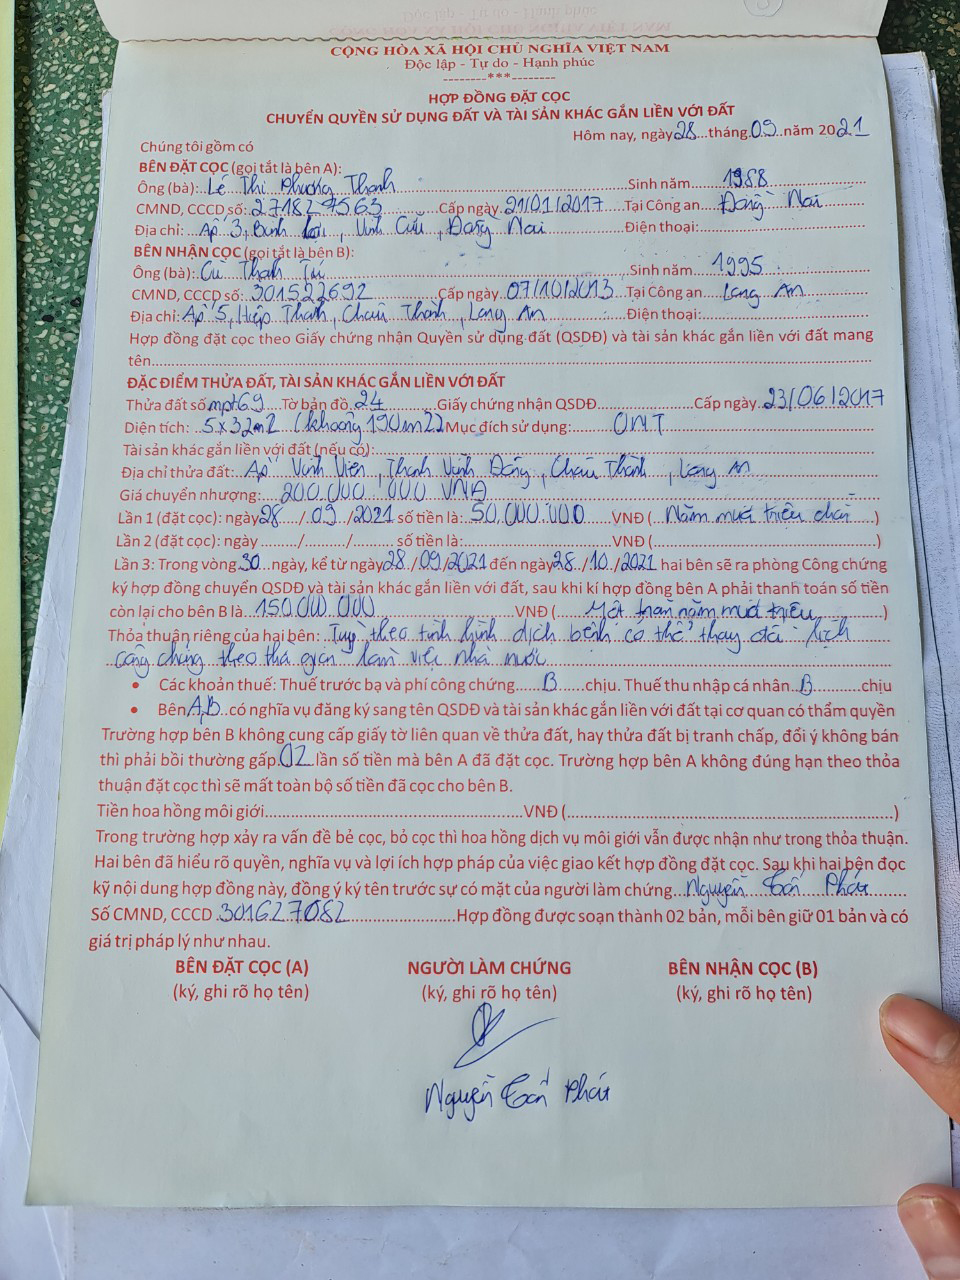 CỘNG HÒA XÃ HỘI CHỦ NGHĨA VIỆT NAM
Độc lập - Tự do - Hạnh phúc
--------***--------
HỢP ĐỒNG ĐẶT CỌC
CHUYỂN QUYỀN SỬ DỤNG ĐẤT VÀ TÀI SẢN KHÁC GẮN LIỀN VỚI ĐẤT
Hôm nay, ngày 28 tháng 09 năm 2021
Chúng tôi gồm có
BÊN ĐẶT CỌC (gọi tắt là bên A):
Ông (bà): Lê Thị Phương Thanh Sinh năm 1988
CMND, CCCD số: 271827563 Cấp ngày 21/01/2017 Tại Công an Đồng Nai
Địa chỉ: Ấp 3, Bình Lợi, Vĩnh Cửu, Đồng Nai Điện thoại:
BÊN NHẬN CỌC (gọi tắt là bên B):
Ông (bà): Cù Thanh Tài Sinh năm 1995
CMND, CCCD số: 301522692 Cấp ngày 07/10/2013 Tại Công an Long An
Địa chỉ: Ấp 5, Hiệp Thạnh, Châu Thành, Long An Điện thoại:
Hợp đồng đặt cọc theo Giấy chứng nhận Quyền sử dụng đất (QSDĐ) và tài sản khác gắn liền với đất mang
tên
ĐẶC ĐIỂM THỬA ĐẤT, TÀI SẢN KHÁC GẮN LIỀN VỚI ĐẤT
Thửa đất số mpt 69 Tờ bản đồ 24 Giấy chứng nhận QSDĐ Cấp ngày 23/06/2017
Diện tích: 5x32m2 (khoảng 190m2) Mục đích sử dụng: ONT
Tài sản khác gắn liền với đất (nếu có):
Địa chỉ thửa đất: Ấp Vĩnh Viễn, Thanh Vĩnh Đông, Châu Thành, Long An
Giá chuyển nhượng: 200.000.000 VNĐ
Lần 1 (đặt cọc): ngày 28/09/2021 số tiền là: 50.000.000 VNĐ (Năm mươi triệu chẵn)
Lần 2 (đặt cọc): ngày ....../......../......... số tiền là: VNĐ ( )
Lần 3: Trong vòng 30 ngày, kể từ ngày 28/09/2021 đến ngày 28/10/2021 hai bên sẽ ra phòng Công chứng
ký hợp đồng chuyển QSDĐ và tài sản khác gắn liền với đất, sau khi kí hợp đồng bên A phải thanh toán số tiền
còn lại cho bên B là 150.000.000 VNĐ (Một trăm năm mươi triệu)
Thỏa thuận riêng của hai bên: Tuỳ theo tình hình dịch bệnh có thể thay đổi lịch
công chứng theo thời gian làm việc nhà nước
• Các khoản thuế: Thuế trước bạ và phí công chứng B chịu. Thuế thu nhập cá nhân B chịu
• Bên A,B có nghĩa vụ đăng ký sang tên QSDĐ và tài sản khác gắn liền với đất tại cơ quan có thẩm quyền
Trường hợp bên B không cung cấp giấy tờ liên quan về thửa đất, hay thửa đất bị tranh chấp, đổi ý không bán
thì phải bồi thường gấp 02 lần số tiền mà bên A đã đặt cọc. Trường hợp bên A không đúng hạn theo thỏa
thuận đặt cọc thì sẽ mất toàn bộ số tiền đã cọc cho bên B.
Tiền hoa hồng môi giới VNĐ ( )
Trong trường hợp xảy ra vấn đề bẻ cọc, bỏ cọc thì hoa hồng dịch vụ môi giới vẫn được nhận như trong thỏa thuận.
Hai bên đã hiểu rõ quyền, nghĩa vụ và lợi ích hợp pháp của việc giao kết hợp đồng đặt cọc. Sau khi hai bên đọc
kỹ nội dung hợp đồng này, đồng ý ký tên trước sự có mặt của người làm chứng Nguyễn Tấn Phát
Số CMND, CCCD 301627082 Hợp đồng được soạn thành 02 bản, mỗi bên giữ 01 bản và có
giá trị pháp lý như nhau.
BÊN ĐẶT CỌC (A) NGƯỜI LÀM CHỨNG BÊN NHẬN CỌC (B)
(ký, ghi rõ họ tên) (ký, ghi rõ họ tên) (ký, ghi rõ họ tên)
Nguyễn Tấn Phát